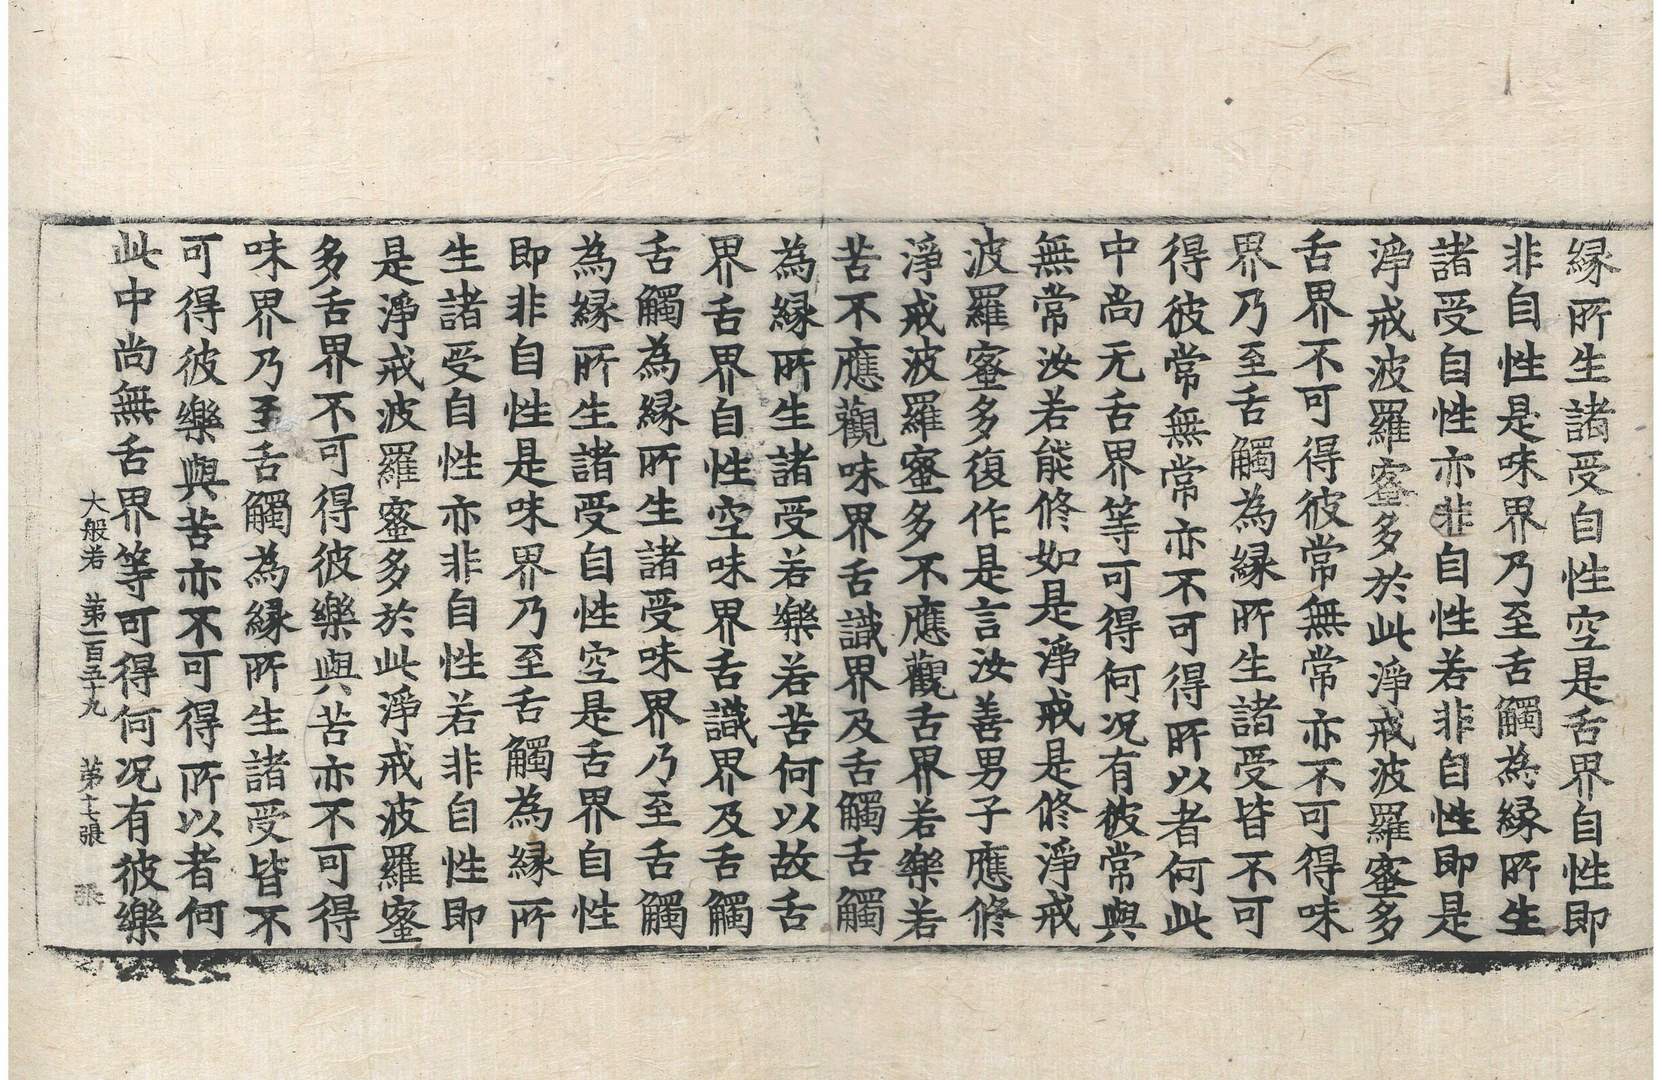 縁所生諸受自性空是舌界自性即
非自性是味界乃至舌觸為縁所生
諸受自性亦非自性若非自性即是
淨戒波羅蜜多於此淨戒波羅蜜多
舌界不可得彼常無常亦不可得味
界乃至舌觸為縁所生諸受皆不可
得彼常無常亦不可得所以者何此
中尚无舌界等可得何况有彼常與
無常汝若能修如是淨戒是修淨戒
波羅蜜多復作是言汝善男子應修
淨戒波羅蜜多不應觀舌界若樂若
苦不應觀味界舌識界及舌觸舌觸
為縁所生諸受若樂若苦何以故舌
界舌界自性空味界舌識界及舌觸
舌觸為縁所生諸受味界乃至舌觸
為縁所生諸受自性空是舌界自性
即非自性是味界乃至舌觸為縁所
生諸受自性亦非自性若非自性即
是淨戒波羅蜜多於此淨戒波羅蜜
多舌界不可得彼樂與苦亦不可得
味界乃至舌觸為縁所生諸受皆不
可得彼樂與苦亦不可得所以者何
此中尚無舌界等可得何况有彼樂
大般若 第一百五十九 第十七張 張